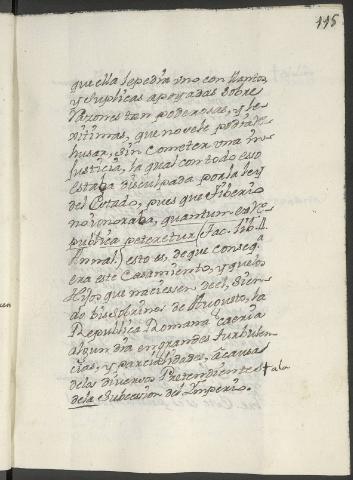 115
que ella le pedia uno con llantos,
y suplicas apoyadas sobre
razones tan poderosas, y le-
xitimas, que no vele podia re-
husar, sin cometer una in-
justicia, la qual con todo esso
estaba disculpada por la ley
del Estado, pues que Tiberio
no ignoraba, quantum ex Re-
publica peteretur (Tac. lib. 4.
Annal.) esto es, de que conseqª
era este Casamiento, y que los
Hijos que naciessen de el, sien-
do bisobrinos de Augusto, la
Republica Romana caeria
algun dia en grandes turbulen-
cias, y parcialidades, a causa
de los diversos Pretendientes † a la
de la Subcesion del Imperio.